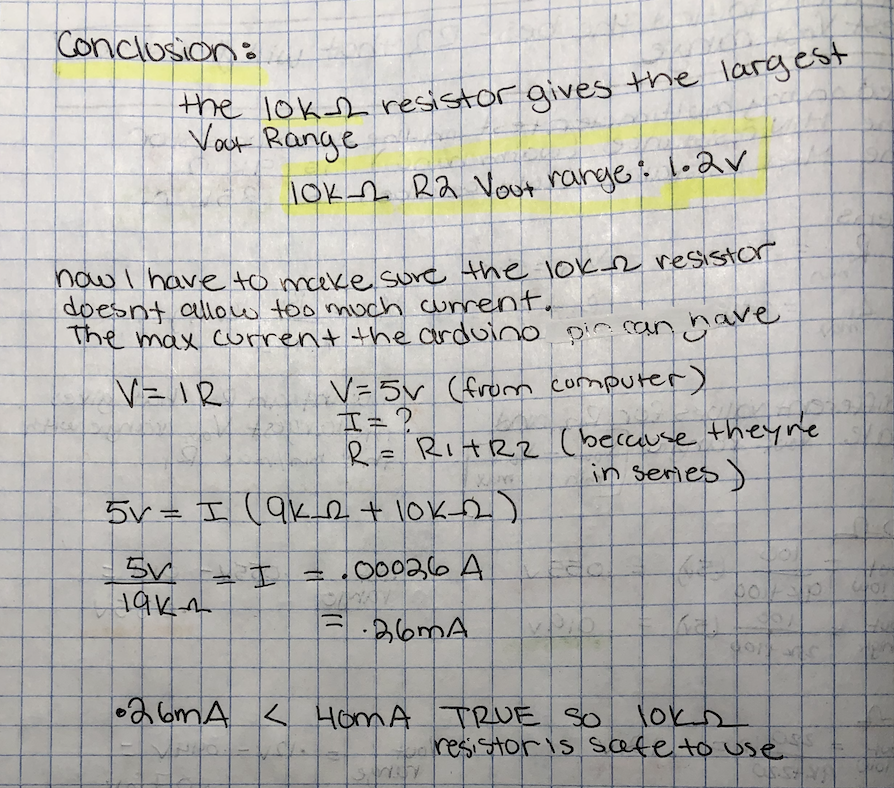 Conclusion:
the 10kΩ resistor gives the largest
Vout Range
10kΩ R2 Vout range: 1.2V
now I have to make sure the 10kΩ resistor
doesnt allow too much current.
The max current the arduino pin can have
V=IR
V=5v (from computer)
I=?
R= R1+R2 (because they're
in series)
5v = I (9kΩ + 10kΩ)
5v/19kΩ = I = .00026 A
= .26mA
.26mA < 40mA TRUE so 10kΩ
resistor is safe to use